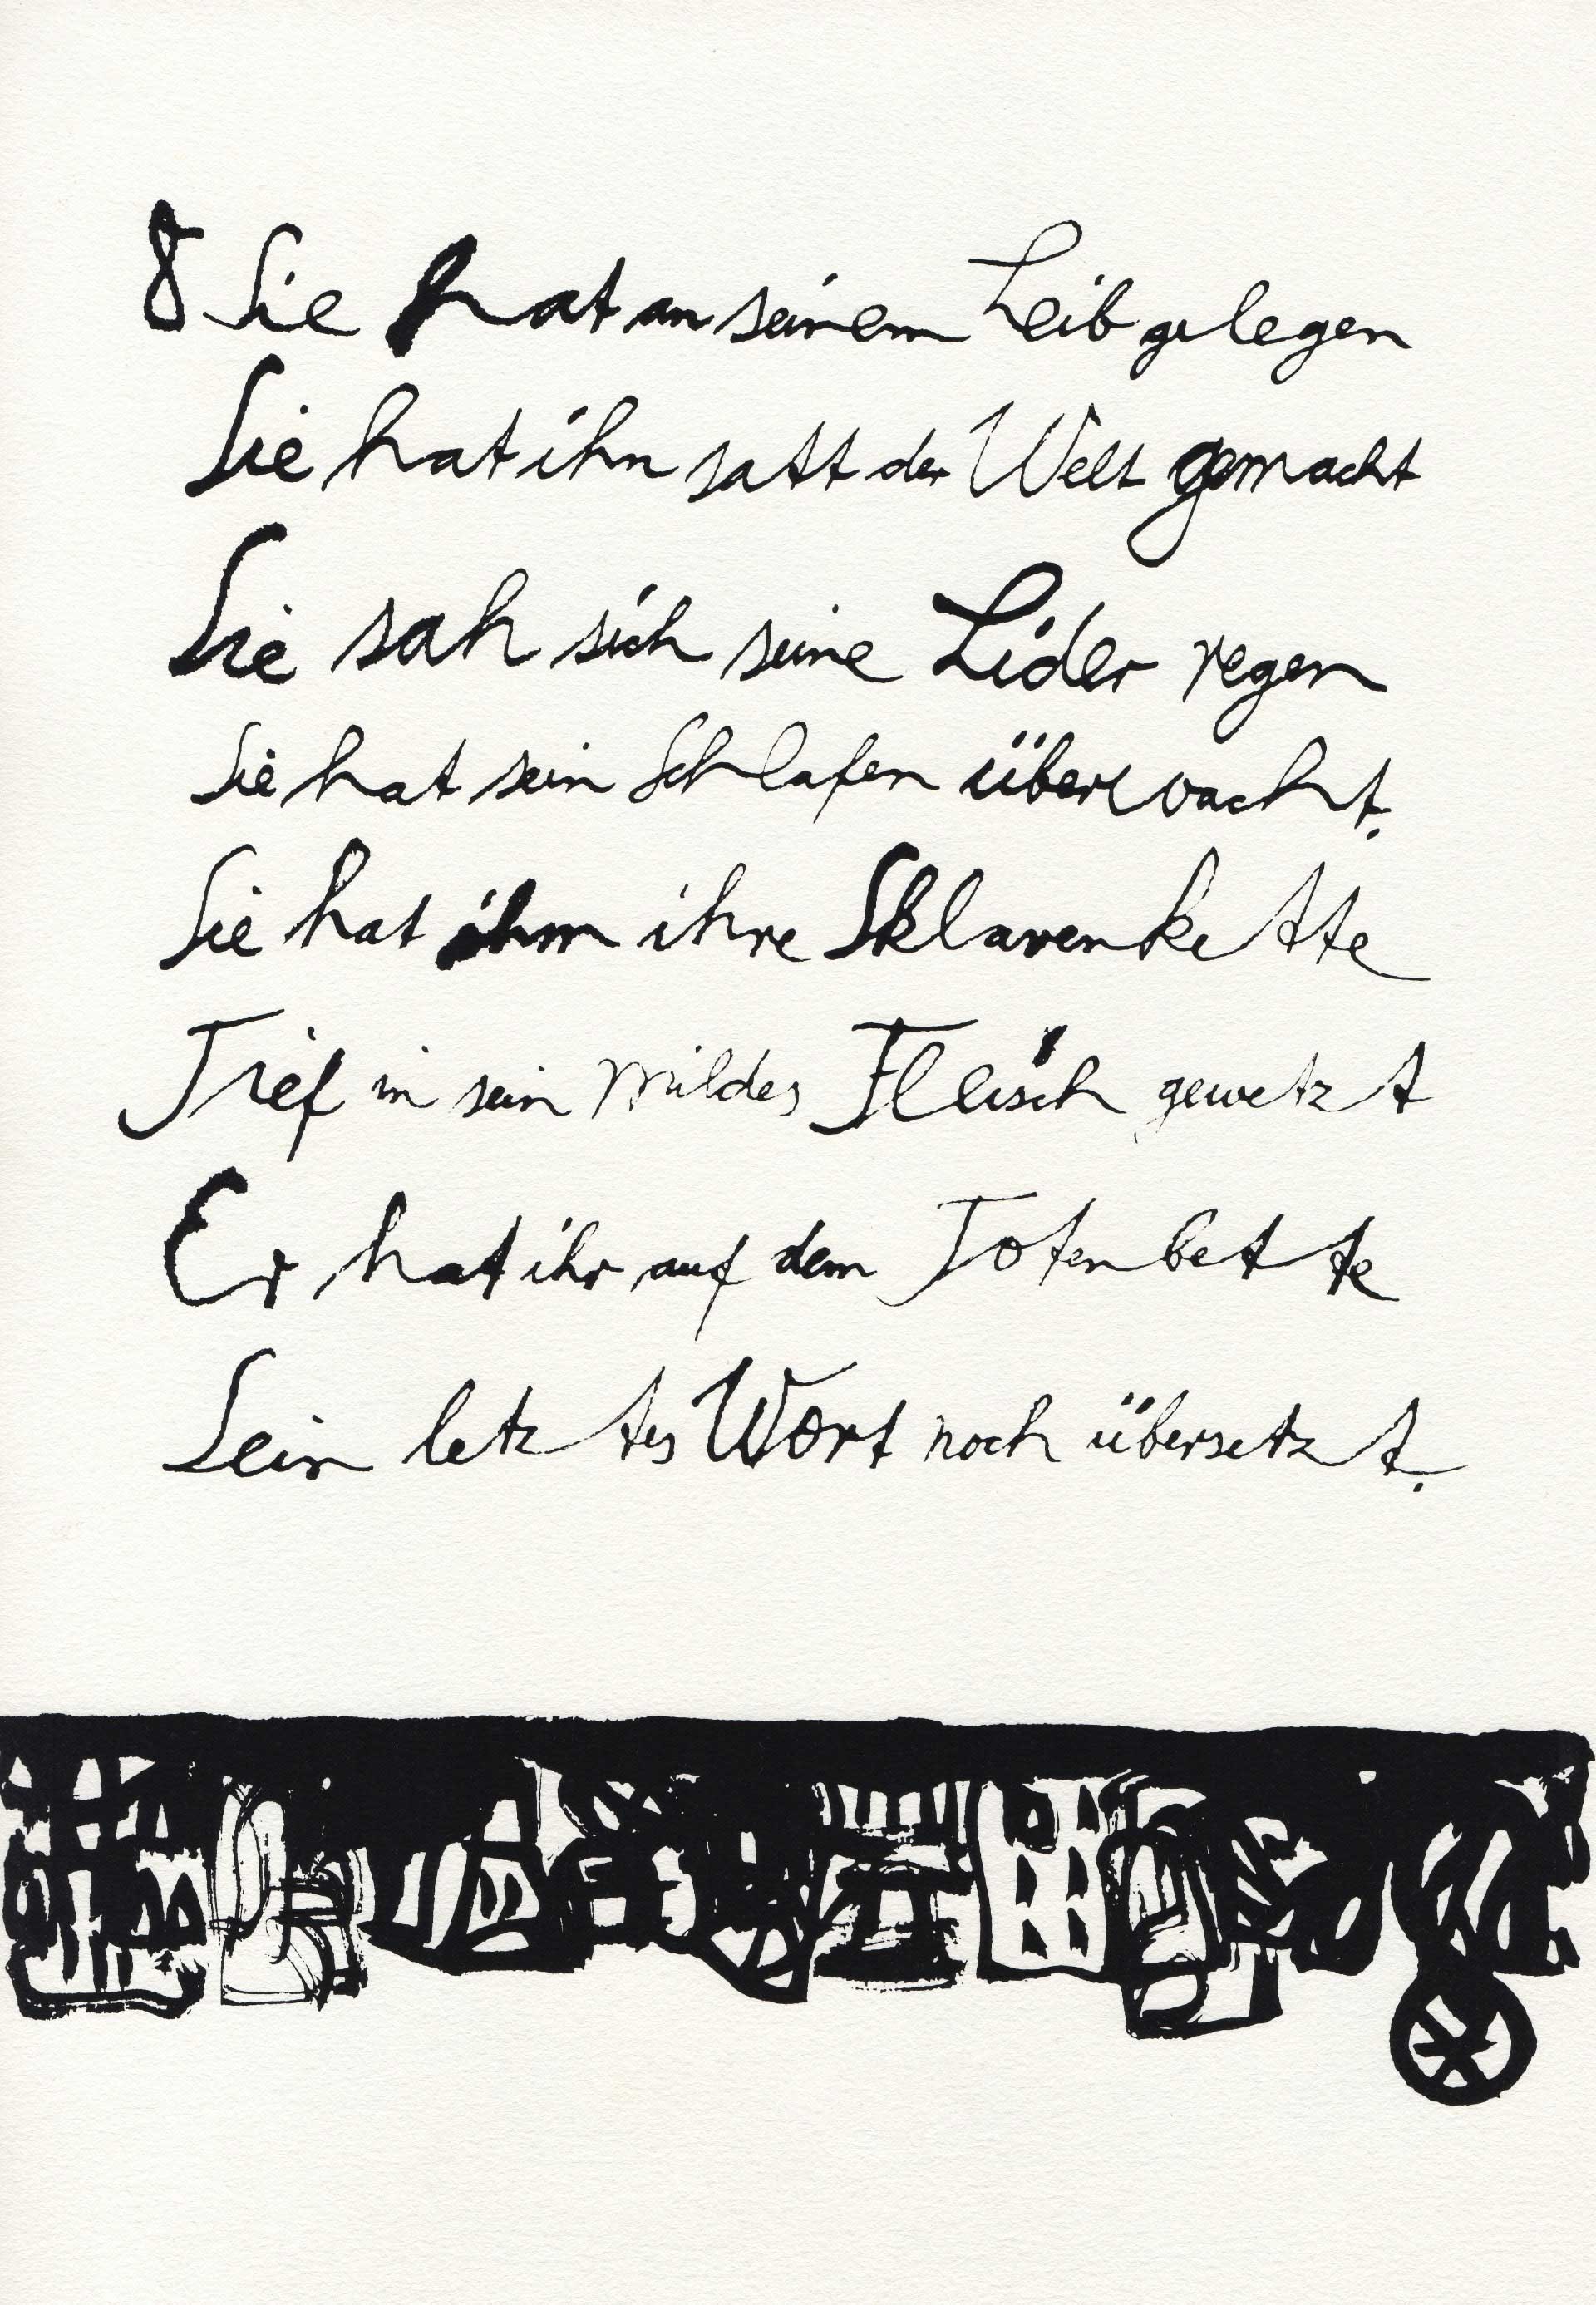 8 Sie hat an seinem Leib gelegen
Sie hat ihn satt der Welt gemacht
Sie sah sich seine Lider regen
Sie hat sein Schlafen überwacht.
Sie hat ihm ihre Sklavenkette
Tief in sein mildes Fleisch gewetzt
Er hat ihr auf dem Totenbette
Sein letztes Wort noch übersetzt.